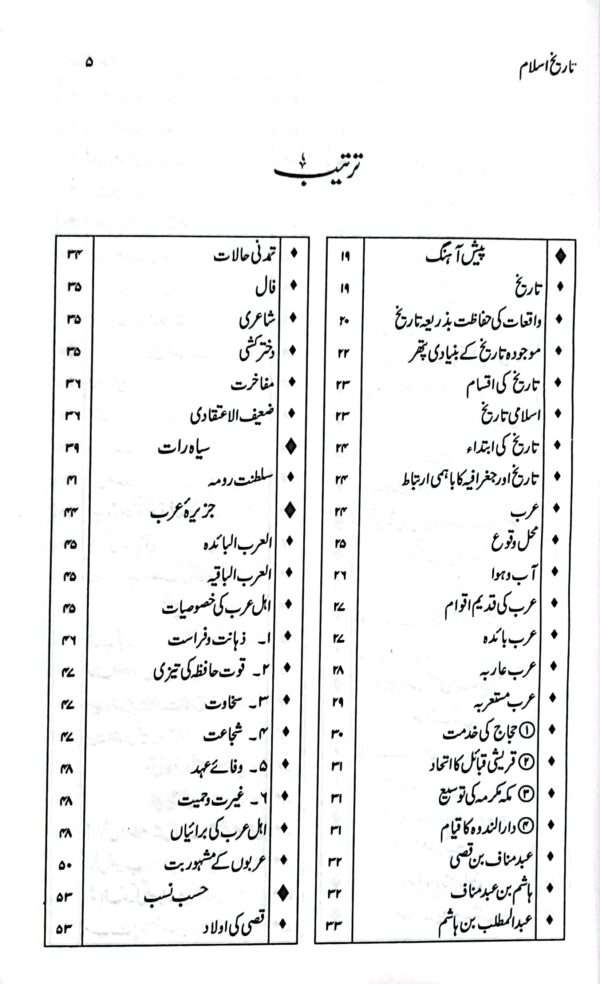 تاریخ اسلام ۵
ترتیب
♦ پیش آہنگ ۱۹
♦ تاریخ ۱۹
♦ واقعات کی حفاظت بذریعہ تاریخ ۲۰
♦ موجودہ تاریخ کے بنیادی پتھر ۲۲
♦ تاریخ کی اقسام ۲۳
♦ اسلامی تاریخ ۲۳
♦ تاریخ کی ابتداء ۲۴
♦ تاریخ اور جغرافیہ کا باہمی ارتباط ۲۴
♦ عرب ۲۴
♦ محل وقوع ۲۵
♦ آب و ہوا ۲۶
♦ عرب کی قدیم اقوام ۲۷
♦ عرب بائدہ ۲۷
♦ عرب عاربہ ۲۸
♦ عرب مستعربہ ۲۹
♦ ① حجاج کی خدمت ۳۰
♦ ② قریشی قبائل کا اتحاد ۳۱
♦ ③ مکہ مکرمہ کی توسیع ۳۱
♦ ④ دارالندوہ کا قیام ۳۱
♦ عبد مناف بن قصی ۳۲
♦ ہاشم بن عبد مناف ۳۲
♦ عبدالمطلب بن ہاشم ۳۳
♦ تمدنی حالات ۳۴
♦ فال ۳۵
♦ شاعری ۳۵
♦ دختر کشی ۳۵
♦ مفاخرت ۳۶
♦ ضعیف الاعتقادی ۳۶
♦ سیاہ رات ۳۹
♦ سلطنت رومہ ۴۱
♦ جزیرۂ عرب ۴۴
♦ العرب البائدہ ۴۵
♦ العرب الباقیہ ۴۵
♦ اہل عرب کی خصوصیات ۴۵
♦ ۱۔ ذہانت و فراست ۴۶
♦ ۲۔ قوت حافظہ کی تیزی ۴۷
♦ ۳۔ سخاوت ۴۷
♦ ۴۔ شجاعت ۴۷
♦ ۵۔ وفائے عہد ۴۸
♦ ۶۔ غیرت و حمیت ۴۸
♦ اہل عرب کی برائیاں ۴۸
♦ عربوں کے مشہور بت ۵۰
♦ حسب نسب ۵۳
♦ قصی کی اولاد ۵۳